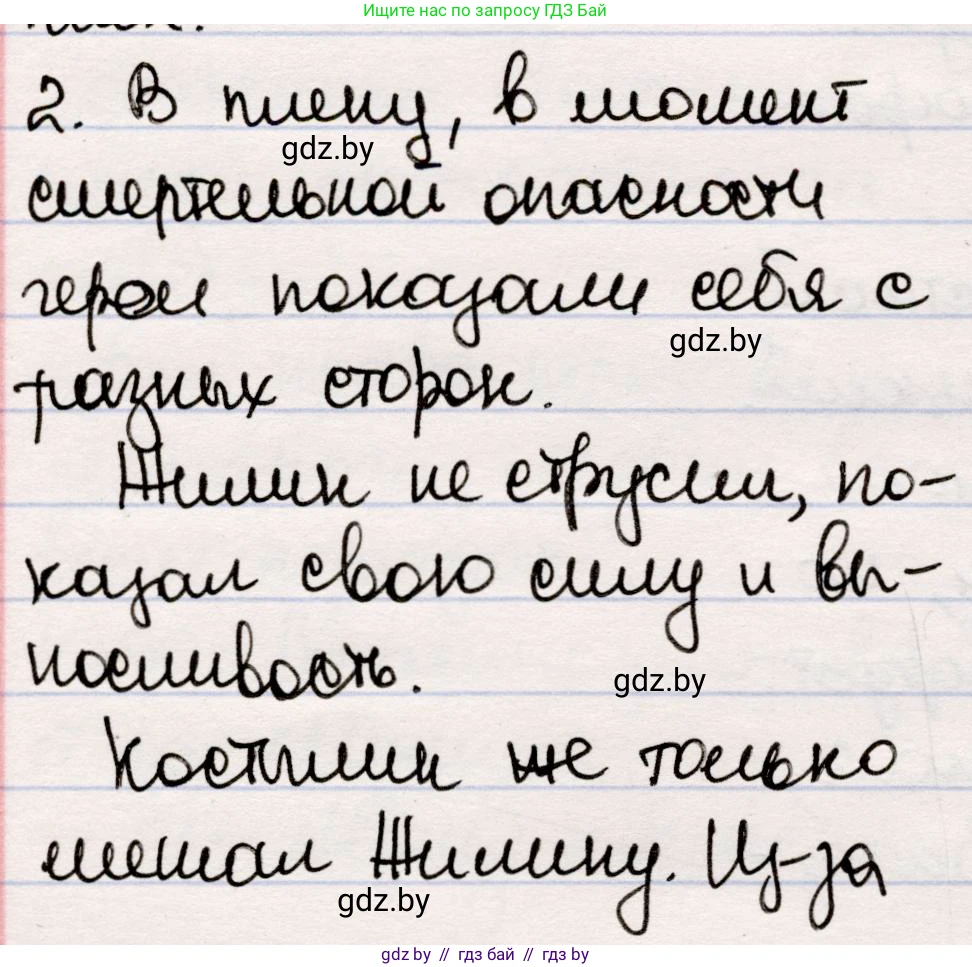 Ищите нас по запросу ГДЗ Бай
2. В плену, в момент
gdz.by
смертельной опасности
герои показали себя с
gdz.by
разных сторон.
Жилин не струсил, по-
казал свою силу и вы-
носливость.
gdz.by
Костылин же только
мешал Жилину. Из-за
gdz.by
gdz.by // гдз бай // gdz.by